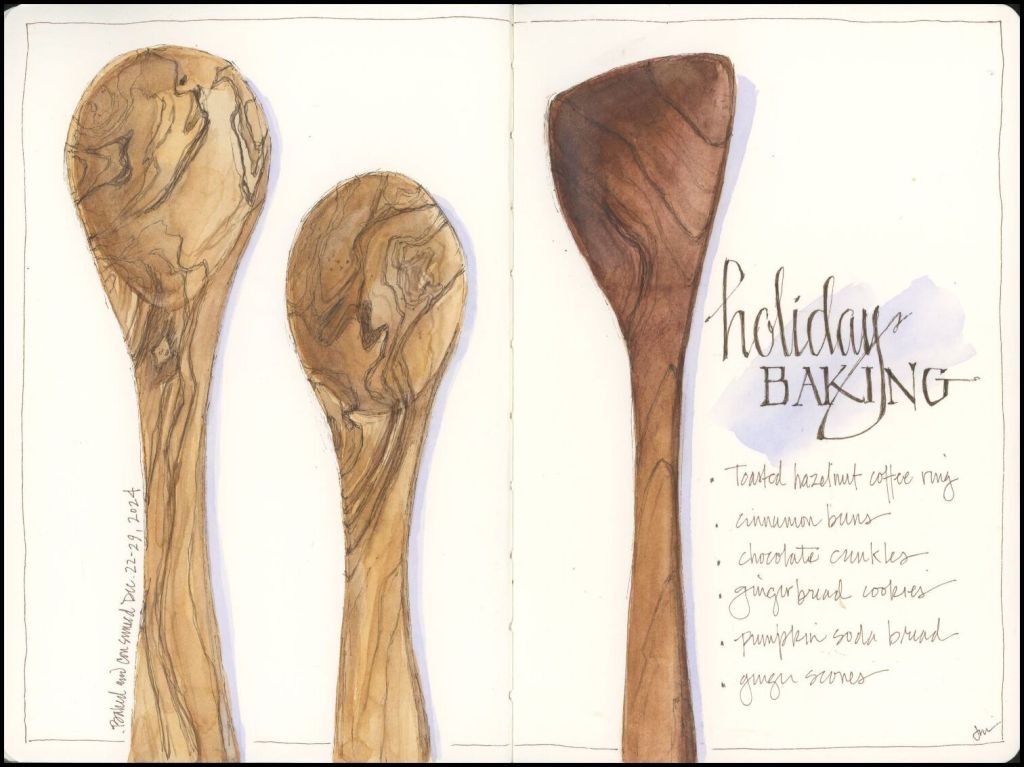 Baked and consumed Dec. 22-29, 2024
holiday
BAKING
• Toasted hazelnut coffee ring
• cinnamon buns
• chocolate crinkles
• gingerbread cookies
• pumpkin soda bread
• ginger scones